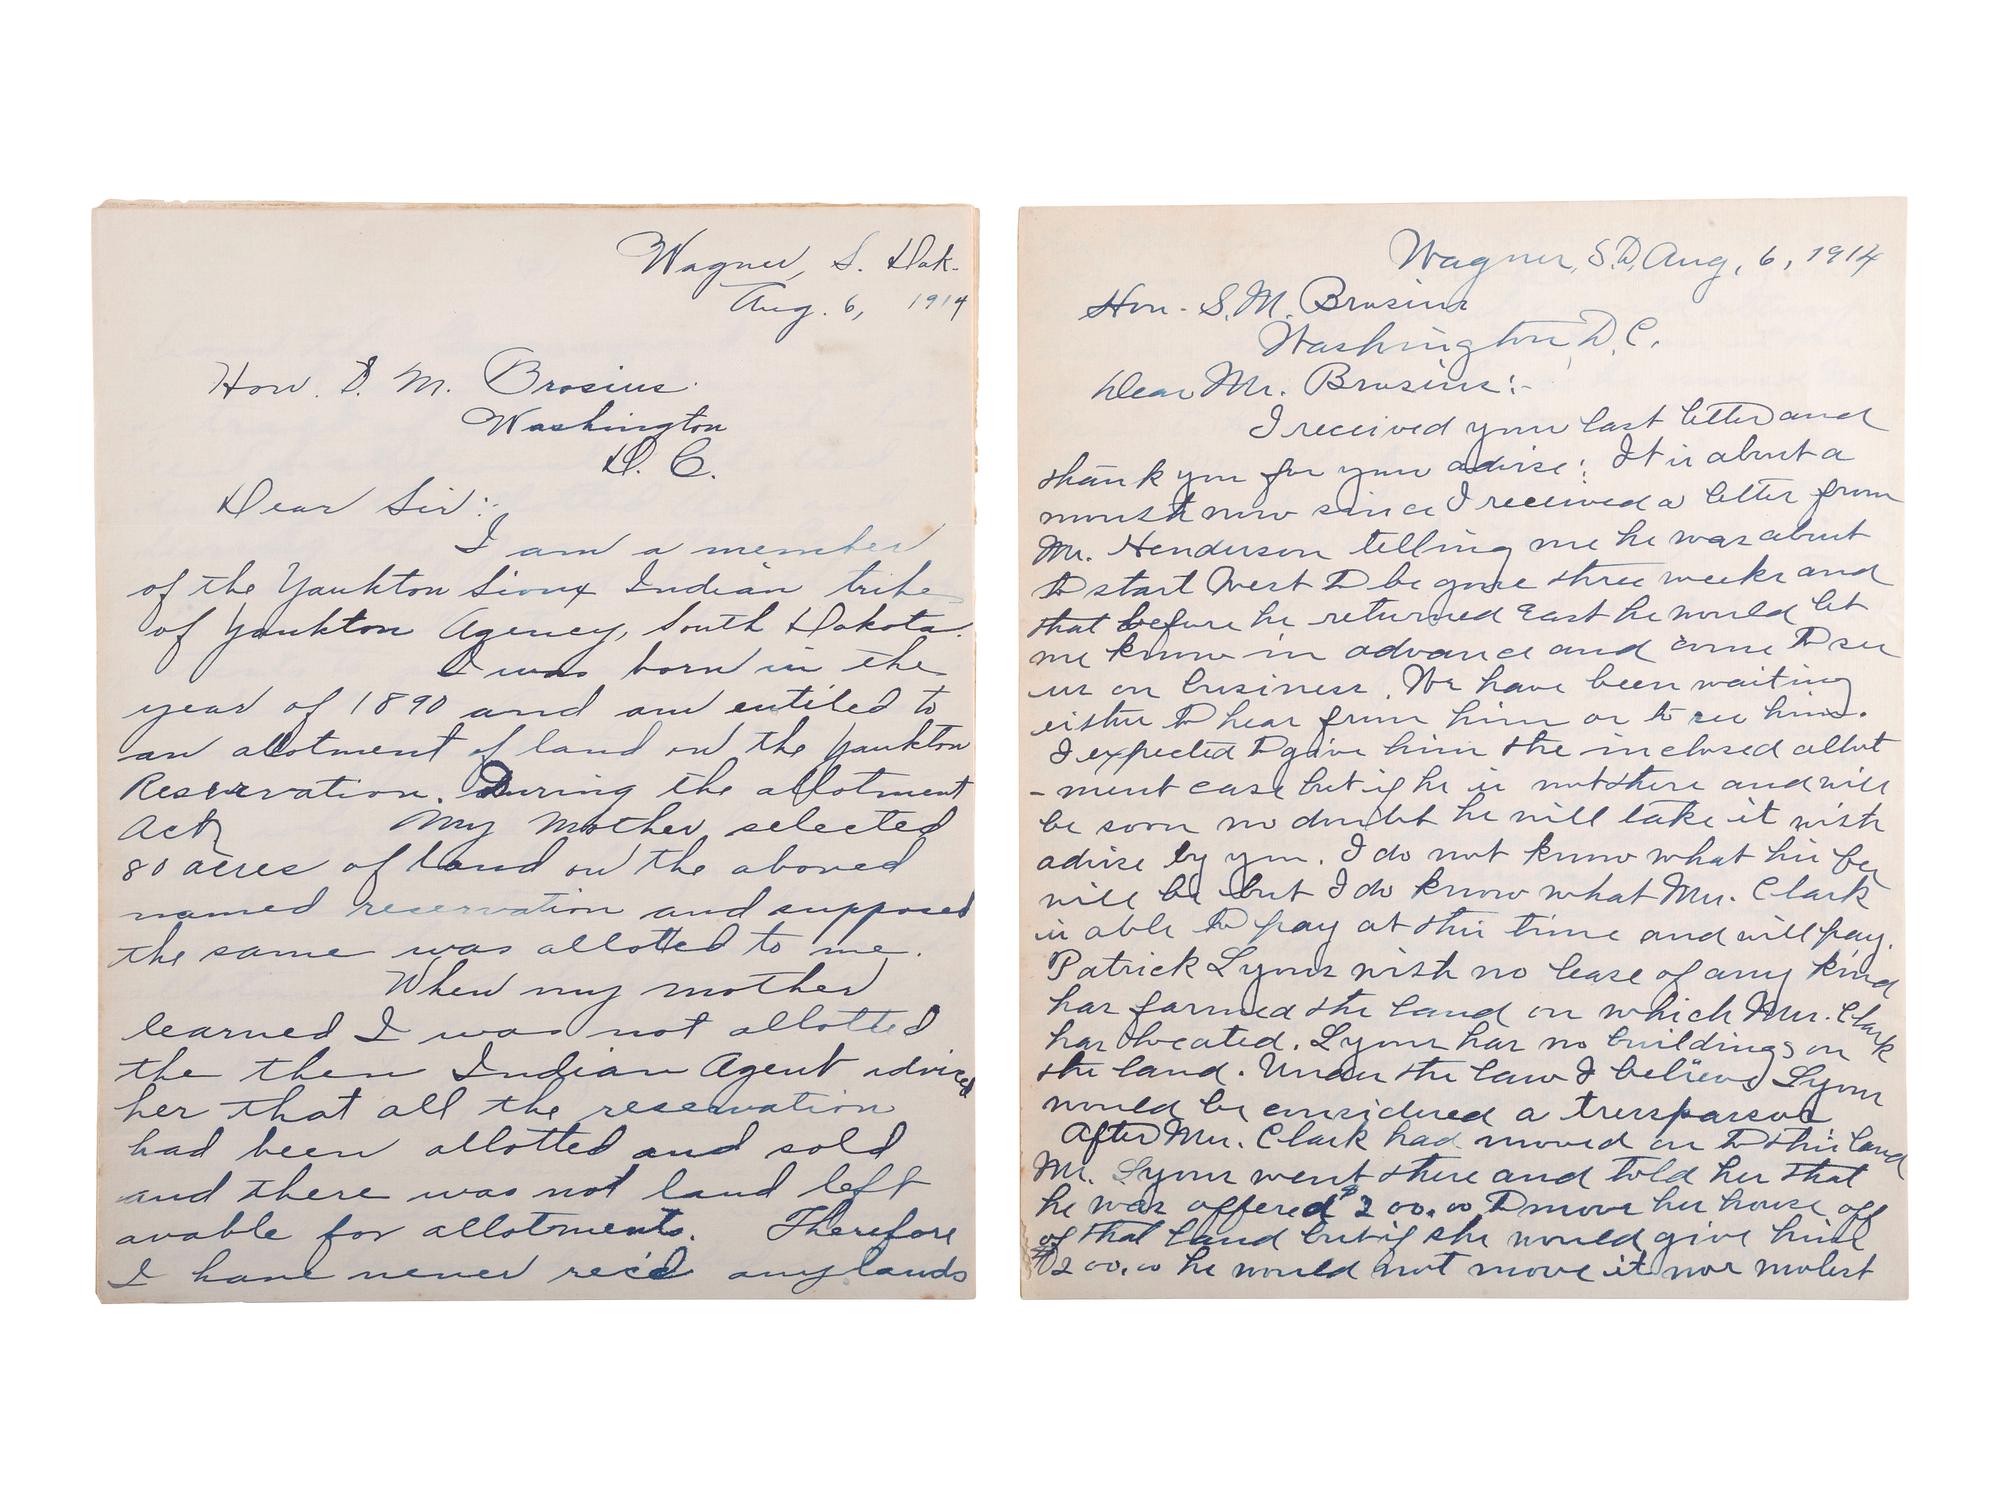 Wagner, S. Dak.
Aug. 6, 1914
Hon. S. M. Brosius.
Washington
D. C.
Dear Sir:
I am a member
of the Yankton Sioux Indian tribe
of Yankton Agency, South Dakota.
I was born in the
year of 1890 and am entiled to
an allotment of land on the Yankton
Reservation. During the allotment
Act, My Mother selected
80 acres of land on the aboved
named reservation and supposed
the same was allotted to me.
When my mother
learned I was not allotted
the then Indian Agent adviced
her that all the reservation
had been allotted and sold
and there was not land left
avable for allotments. Therefore
I have never rec'd any lands
Wagner, S.D, Aug, 6, 1914
Hon. S. M. Brosius
Washington D. C.
Dear Mr. Brosius:-
I received your last letter and
thank you for your advise: It is about a
month now since I received a letter from
Mr. Henderson telling me he was about
to start West to be gone three weeks and
that before he returned East he would let
me know in advance and come to see
us on business. We have been waiting
either to hear from him or to see him.
I expected to give him the inclosed allot
-ment case but if he is not there and will
be soon no doubt he will take it with
advise by you. I do not know what his fee
will be but I do know what Mrs. Clark
is able to pay at this time and will pay.
Patrick Lyons with no lease of any kind
has farmed the land on which Mrs. Clark
has located. Lyons has no buildings on
the land. Under the law I believe Lyons
would be considered a tresspassor
After Mrs. Clark had moved on to this land
Mr. Lyons went there and told her that
he was offered $200.00 to move her house off
of that land but if she would give him
$200.00 he would not move it nor molest